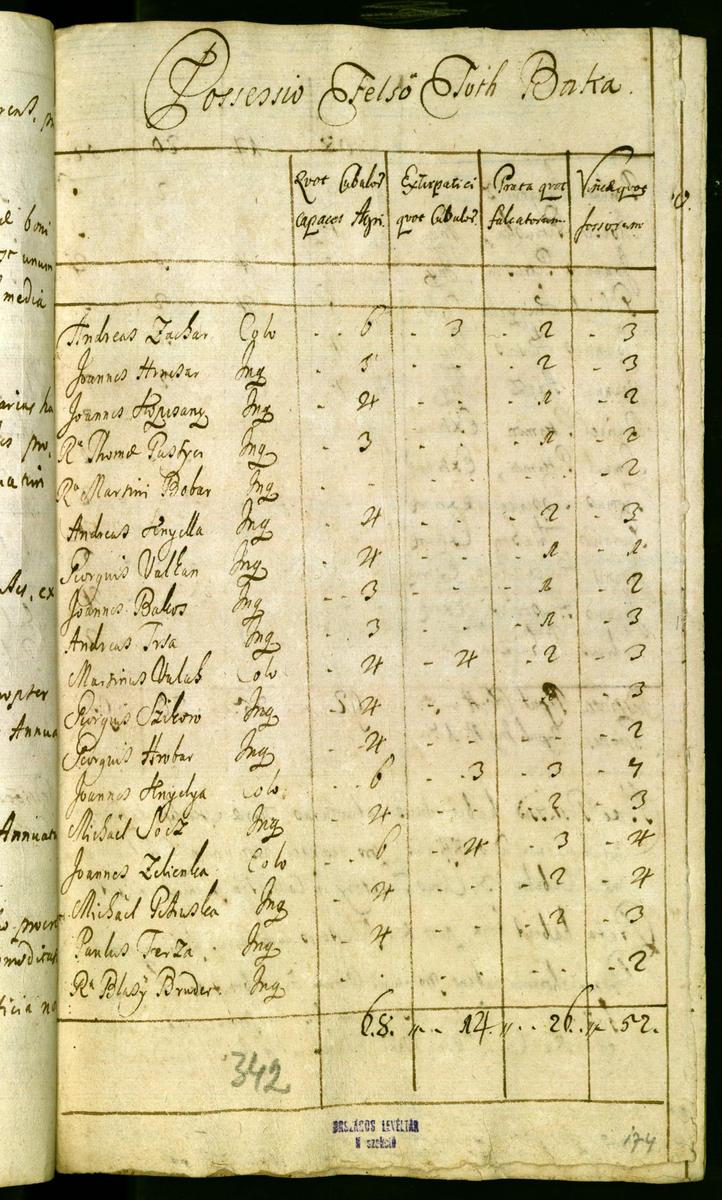 Possessio Felsö Tóth Baka.
Quot Cubulor. Extirpatici Prata quot Vineæ quot
capaces Agri. quot Cubulor. falcatorum fossorum
Andreas Zachar Colo - - 6 - 3 - 2 - 3
Joannes Hrncsar Inq - 5 - - - 2 - 3
Joannes Inq - 4 - - - 1 - 2
Ra Thomæ Pastyer Inq - 3 - - - 1 - 2
Ra Martini Bobar Inq - - - - - - - 2
Andreas Hnyella Inq - 4 - - - 2 - 3
Georgius Valkan Inq - 4 - - - 1 - 1
Joannes Bakos Inq - 3 - - - 1 - 2
Andreas Trsa Inq - 3 - - - 1 - 3
Martinus Valach Colo - 4 - 4 - 2 - 3
Georgius Inq - 4 - - - 2 - 3
Georgius Hrobar Inq - 4 - - - - - 2
Joannes Hnyelya Colo - - 6 - 3 - 3 - 7
Michäel Socz Inq - 4 - - - 2 - 3
Joannes Zelienka Colo - - 6 - 4 - 3 - 4
Michäel Petruska Inq - 4 - - - 2 - 4
Paulus Ferza Inq - 4 - - - 2 - 3
Ra Blasÿ Bruder Inq - - - - - - 2
68. " - 14. " - - 26. " 52.
342
ORSZÁGOS LEVÉLTÁR
N szekció
174